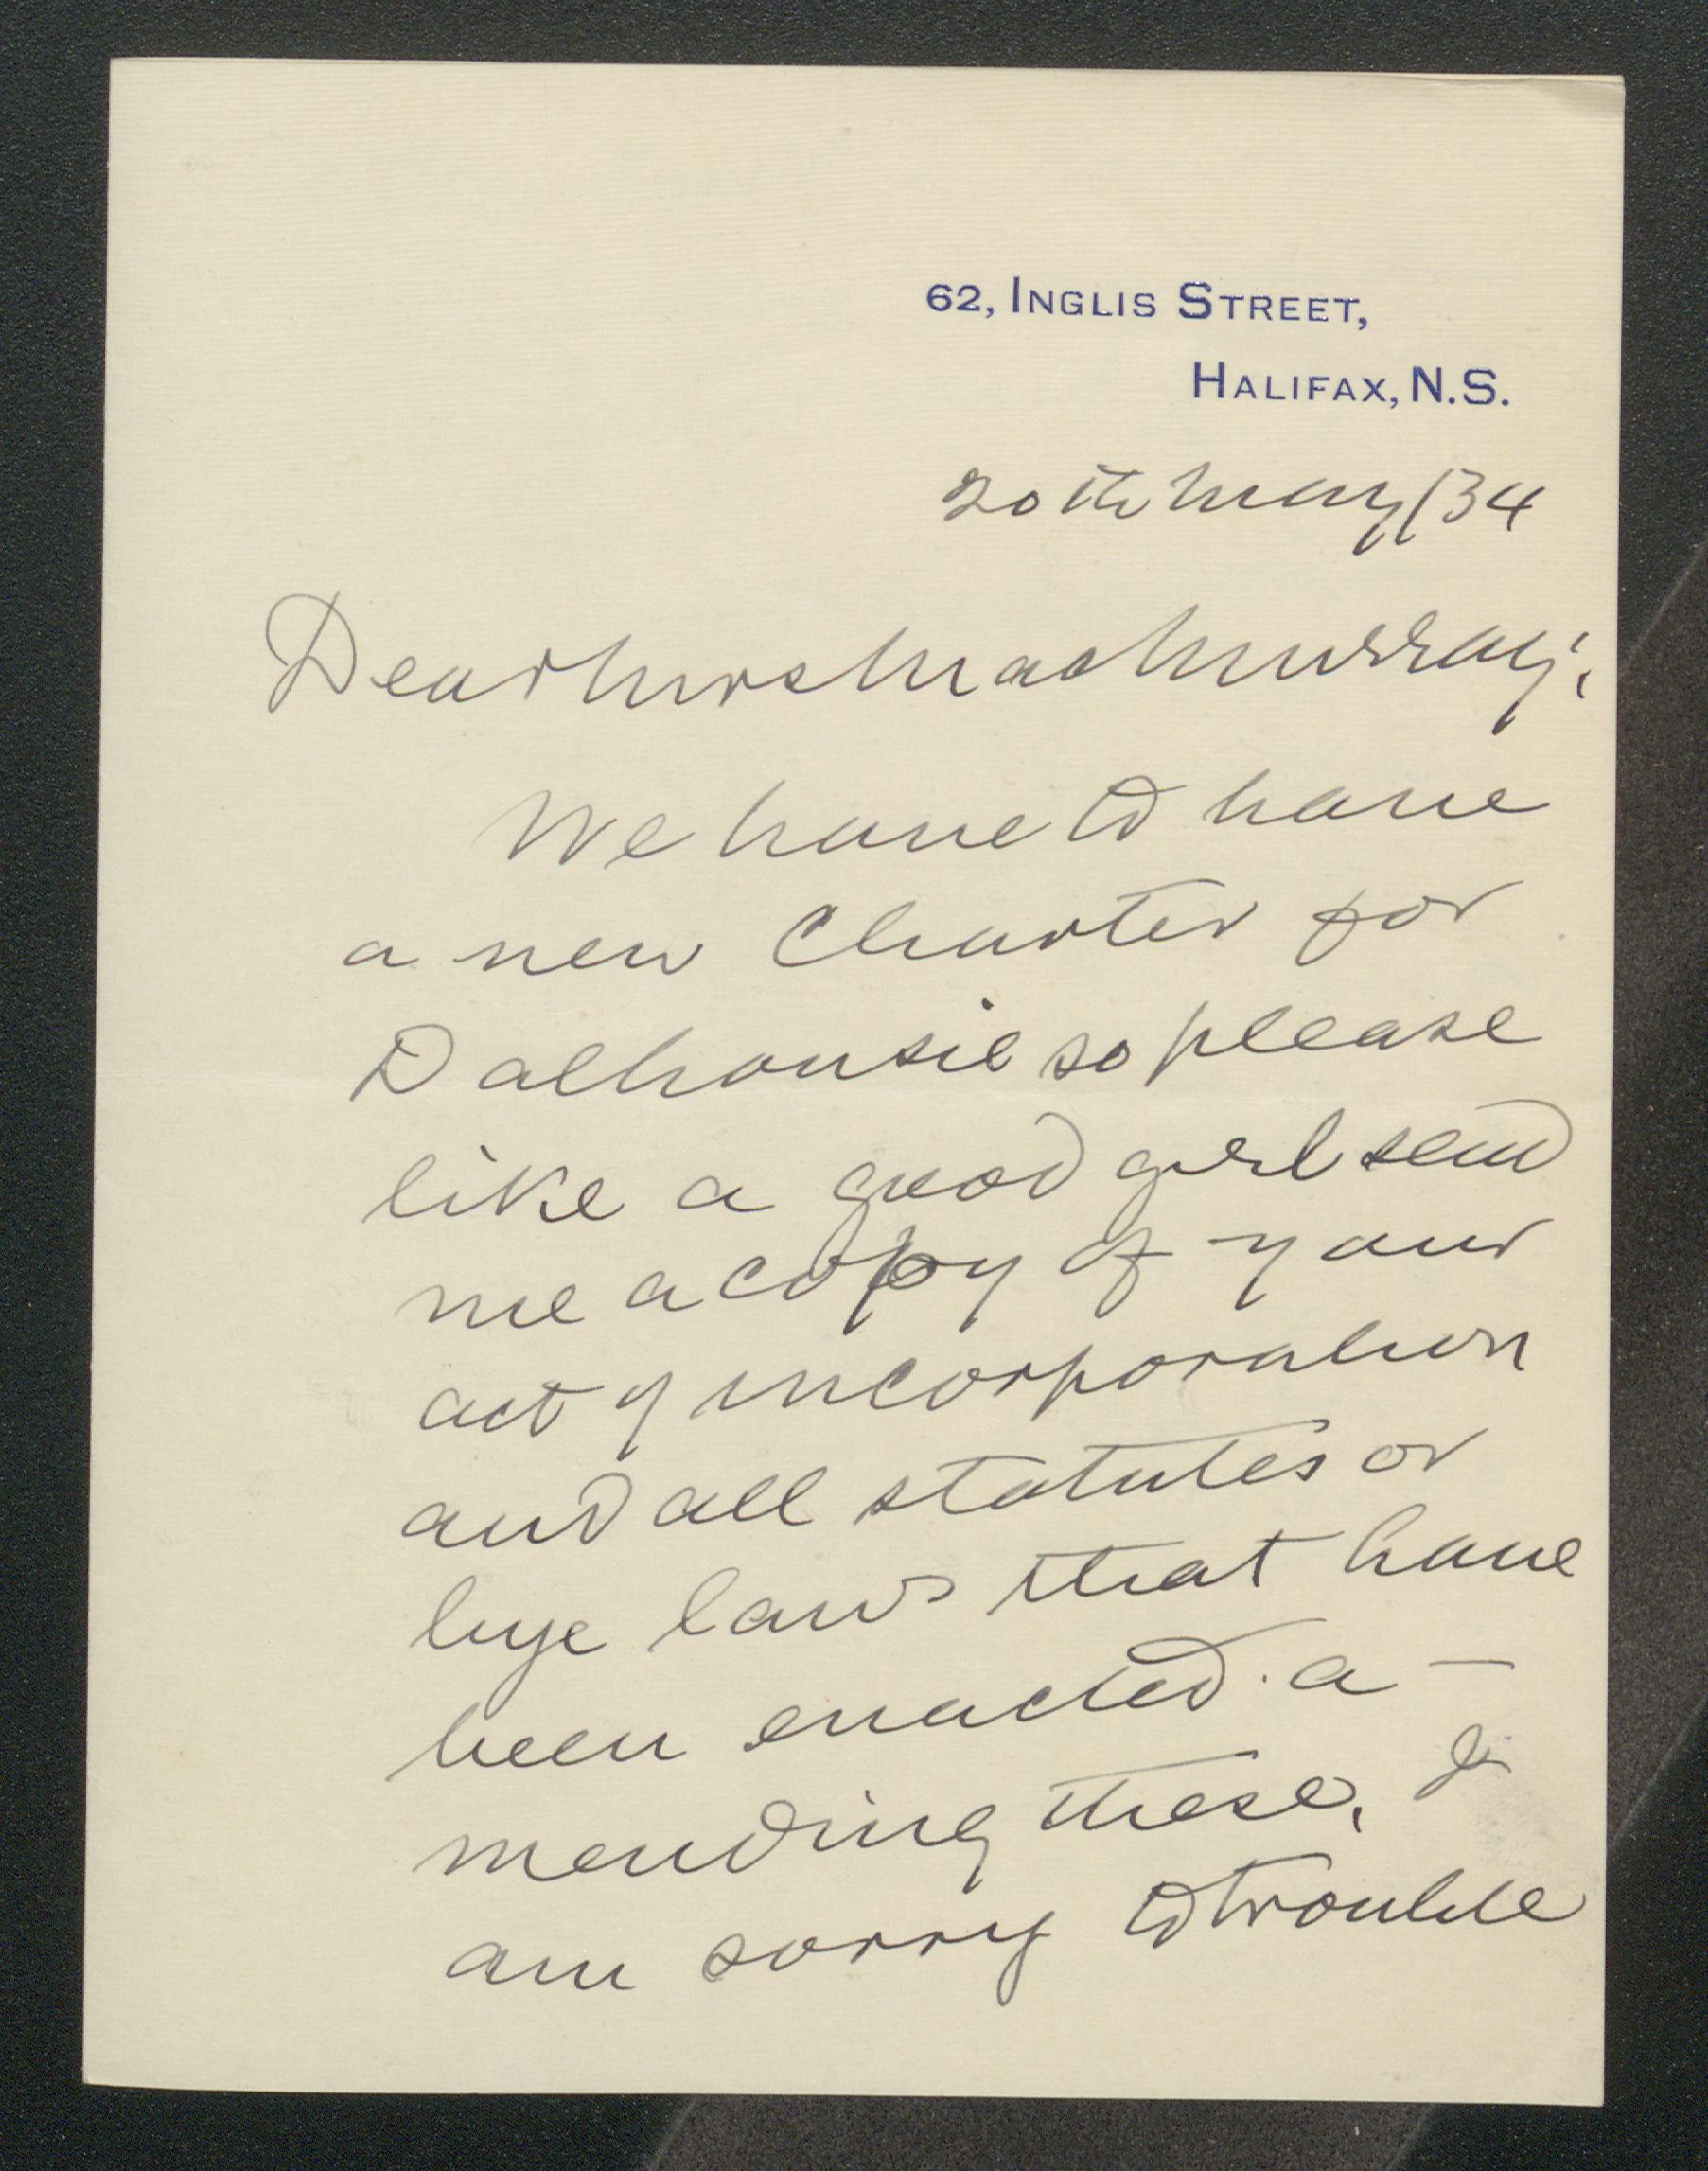 62, INGLIS STREET,
HALIFAX, N.S.
20th May/34
Dear Mrs MacMurray:
We have to have
a new Charter for
Dalhousie so please
like a good girl send
me a copy of your
act of incorporation
and all statutes or
bye laws that have
been enacted a-
mending these. I
am sorry to trouble